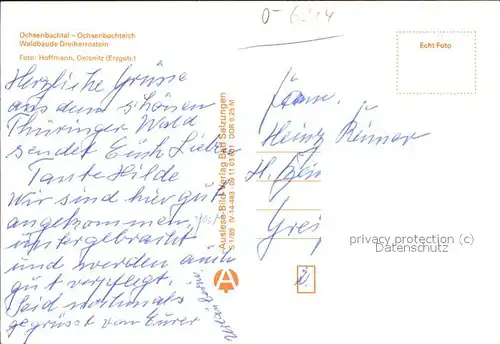 O-6214
Ochsenbachtal – Ochsenbachteich
Waldbaude Dreiherrnstein
Foto: Hoffmann, Oelsnitz (Erzgeb.)
Herzliche Grüsse
aus dem schönen
Thüringer Wald
sendet Euch Liebe
Tante Hilde
Wir sind hier gut
angekommen,
untergebracht
und werden auch
gut verpflegt.
Seid nochmals
gegrüsst von Eurer
Auslese-Bild-Verlag Bad Salzungen
DDR 0,25 M
A
Echt Foto
Fam.
Heinz
H.
privacy protection (c)